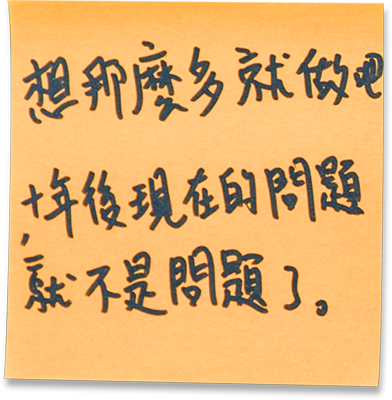 想那麼多就做吧
十年後現在的問題
，就不是問題了。